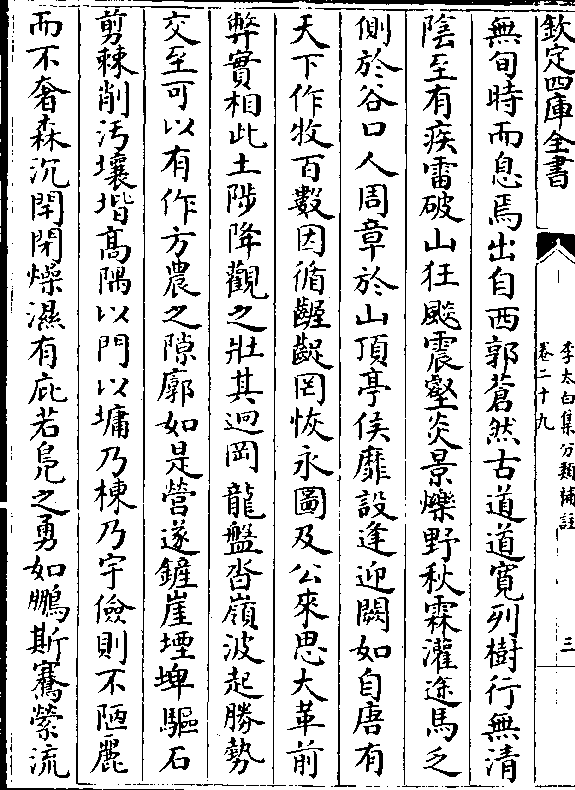 欽定四庫全書
李太白集分類補註
卷二十九
三
無旬時而息焉出自西郭蒼然古道道寛列樹行無清
陰至有疾雷破山狂飈震壑炎景爍野秋霖灌途馬乏
側於谷口人周章於山頂亭侯靡設逢迎闕如自唐有
天下作牧百數因循齷齪罔恢永圖及公來思大革前
弊實相此土陟降觀之壯其迥岡龍盤沓嶺波起勝勢
交至可以有作方農之隙廓如是營遂鏟崖堙埤驅石
剪棘削汚壤堦高隅以門以墉乃棟乃宇儉則不陋麗
而不奢森沉閈閉燥濕有庇若鳬之勇如鵬斯騫縈流